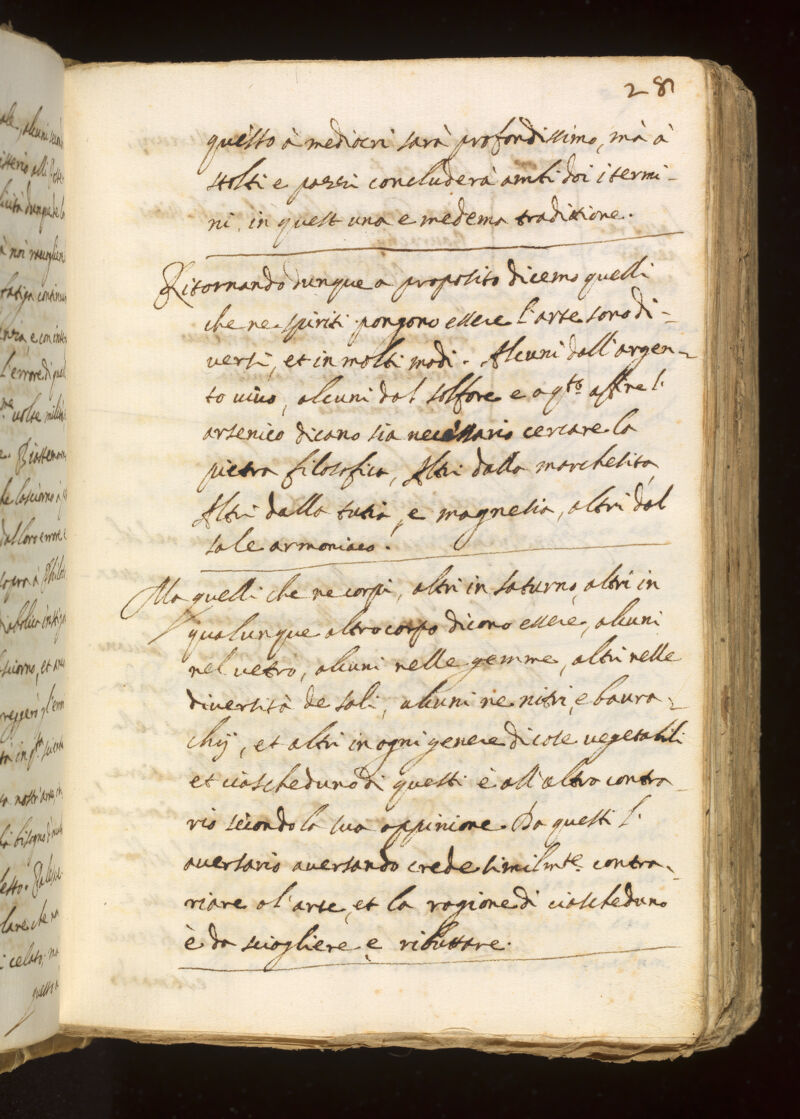 28
questo à mediocri sarà profondissimo, mà à
stolti e pazzi concluderà ambi doi i termi-
ni in quest una e medema traditione.
Ritornando dunque a proposito dicemo quelli
che ne spiriti pongono essere l'arte sono di-
versi, et in molti modi. Alcuni dall'argen-
to uiuo, alcuni dal solfore e a q.to affre l'
arsenico dicano sia necessario cercare la
pietra filosofica, Altri dalla marchesita,
Altri dalla tutia, e magnesia, altri dal
sale armoniaco.
Ma quelli che ne corpi, altri in saturno, altri in
qualunque altro corpo dicono essere, alcuni
nel uetro, alcuni nelle gemme, altri nelle
diversità de sali, alcuni ne nitri, e baura-
chij, et altri in ogni genere di cose vegetabili
et ciascheduno di questi è all'altro contra-
rio secondo la sua oppinione. Da questi l'
auersario auersando crede similm.te contra-
riare a l'arte, et la ragione di ciascheduno
è da sciogliere e ributtare.